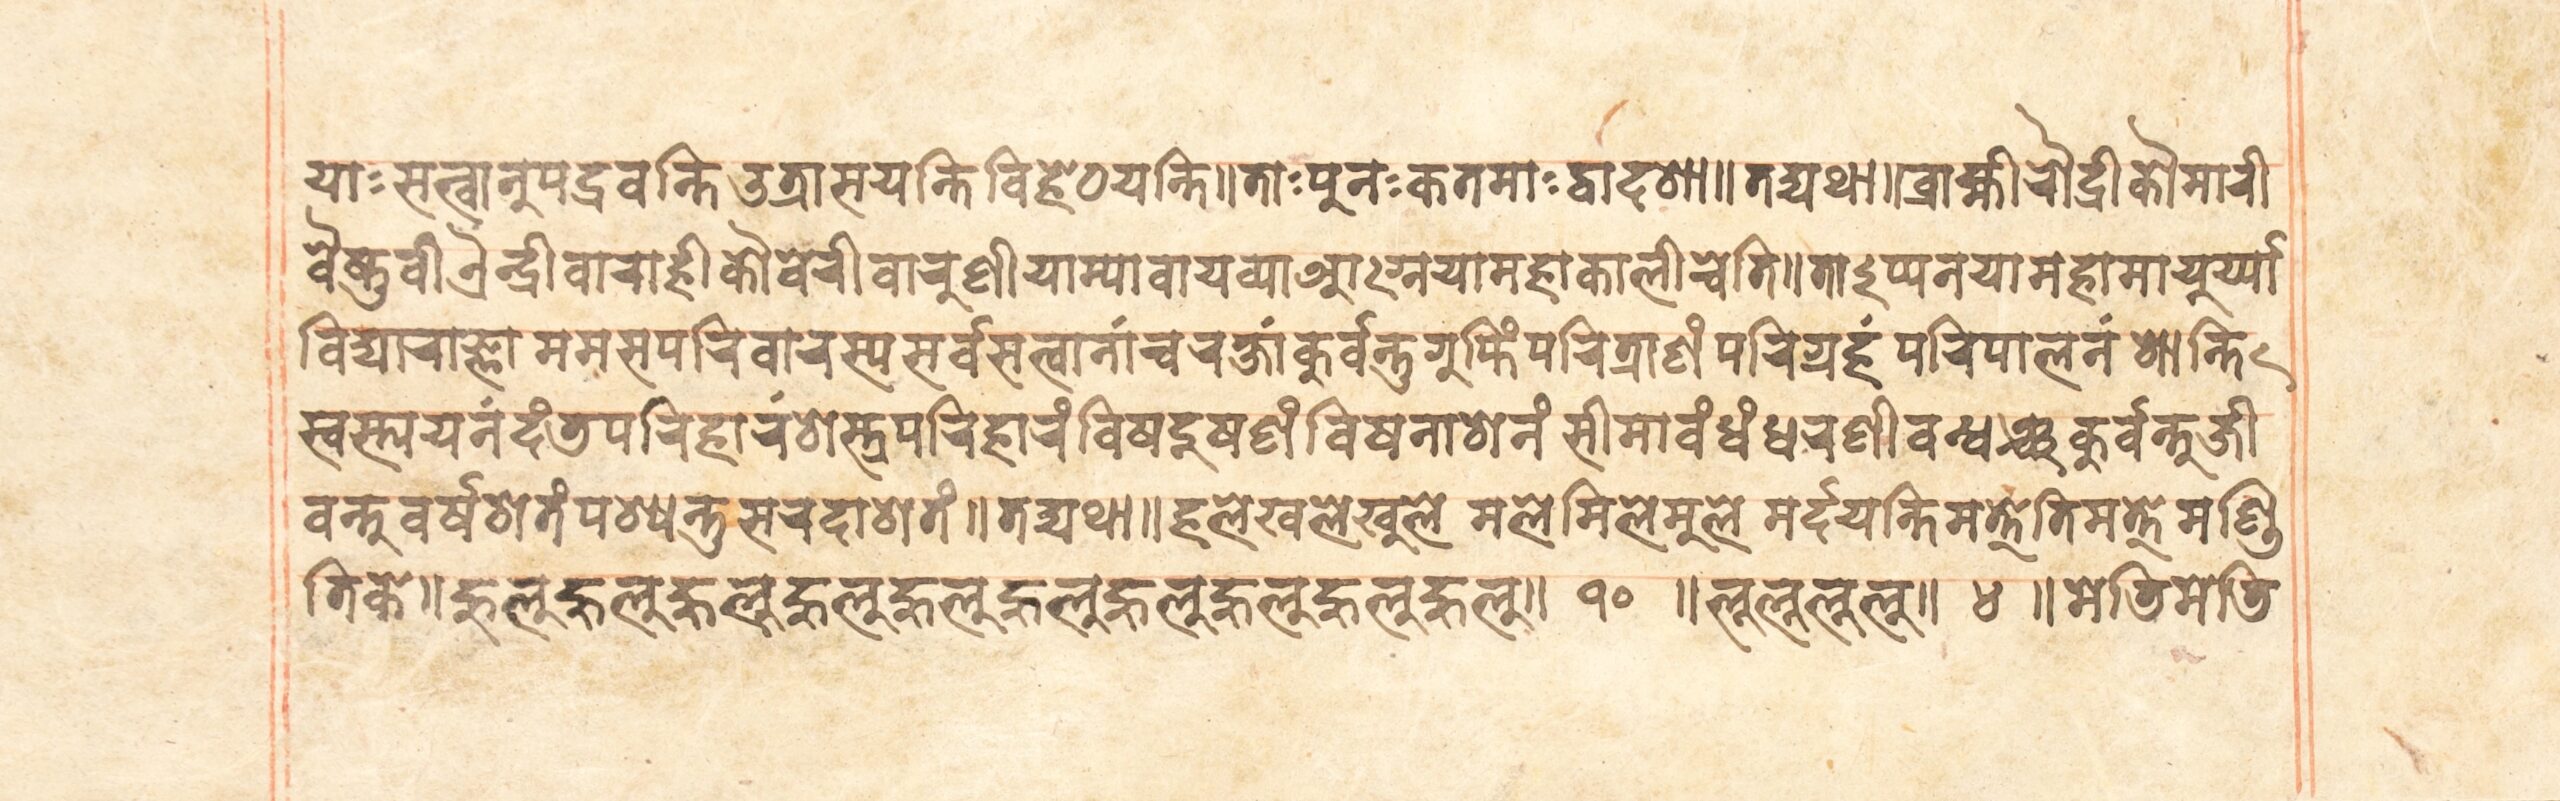 याः सत्वानुपद्रवन्ति उत्रासयन्ति विहेठयन्ति॥ ताः पुनः कतमाः द्वादश॥ तद्यथा॥ ब्राह्मी रौद्री कौमारी
वैष्णुवी ऐन्द्री वाराही कौवेरी वारुणी याम्या वायव्या आग्नया महाकाली चेति॥ ताऽप्यनया महामायुर्य्या
विद्याराज्ञा मम सपरिवारस्य सर्वसत्वानांच्च रक्षां कुर्वन्तु गुप्तिं परित्राणं परिग्रहं परिपालनं शान्ति
स्वस्त्ययनं दंडपरिहारं शस्त्रपरिहारं विषदूषणं विषनाशनं सीमावंधं धरणीवन्धञ्च कुर्वन्तु जी
वन्तु वर्षशतं पश्यन्तु सरदाशतं॥ तद्यथा॥ हले खले खुले मले मिले मुले मर्दयन्ति मत्तेति मत्ते मण्डि
तिके॥ हुलु हुलु हुलु हुलु हुलु हुलु हुलु हुलु हुलु हुलु॥ १० ॥ लुलुलुलु॥ ४ ॥ मेडि मेडि